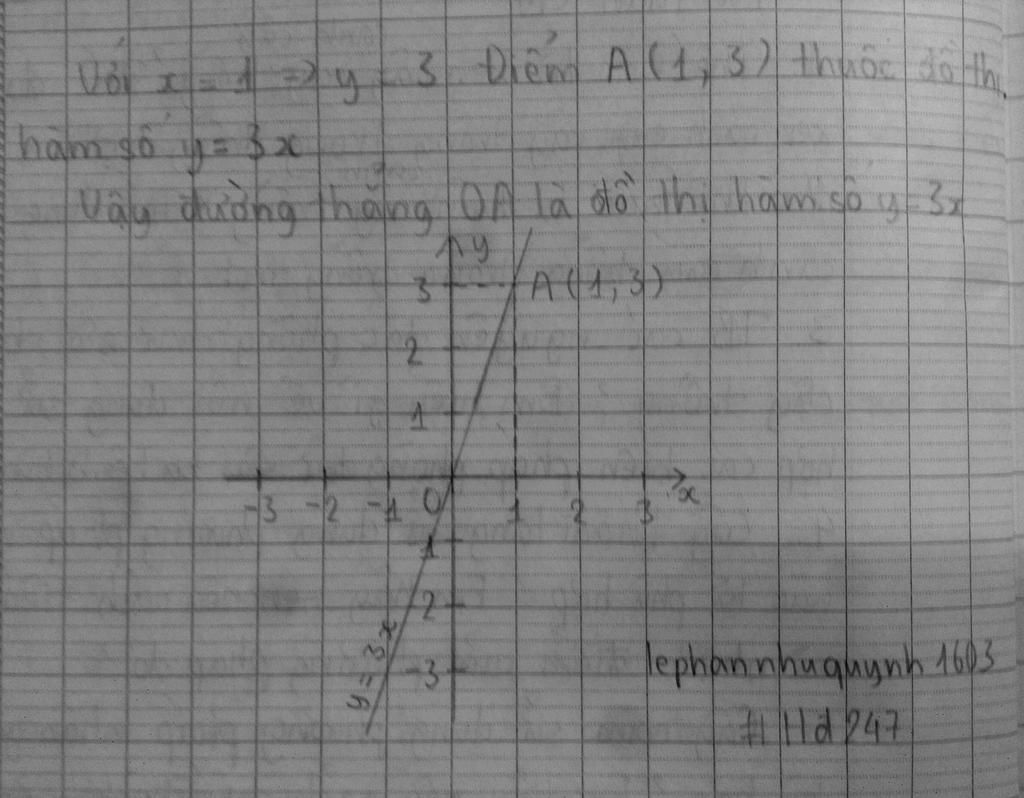 Với x = 1 => y = 3 Điểm A (1, 3) thuộc đồ thị
hàm số y = 3x
Vậy đường thẳng OA là đồ thị hàm số y = 3x
y
3 A (1, 3)
2
1
-3 -2 -1 O 1 2 3 x
1
2
-3
y = 3x
lephannhuquynh1603
Hd 247